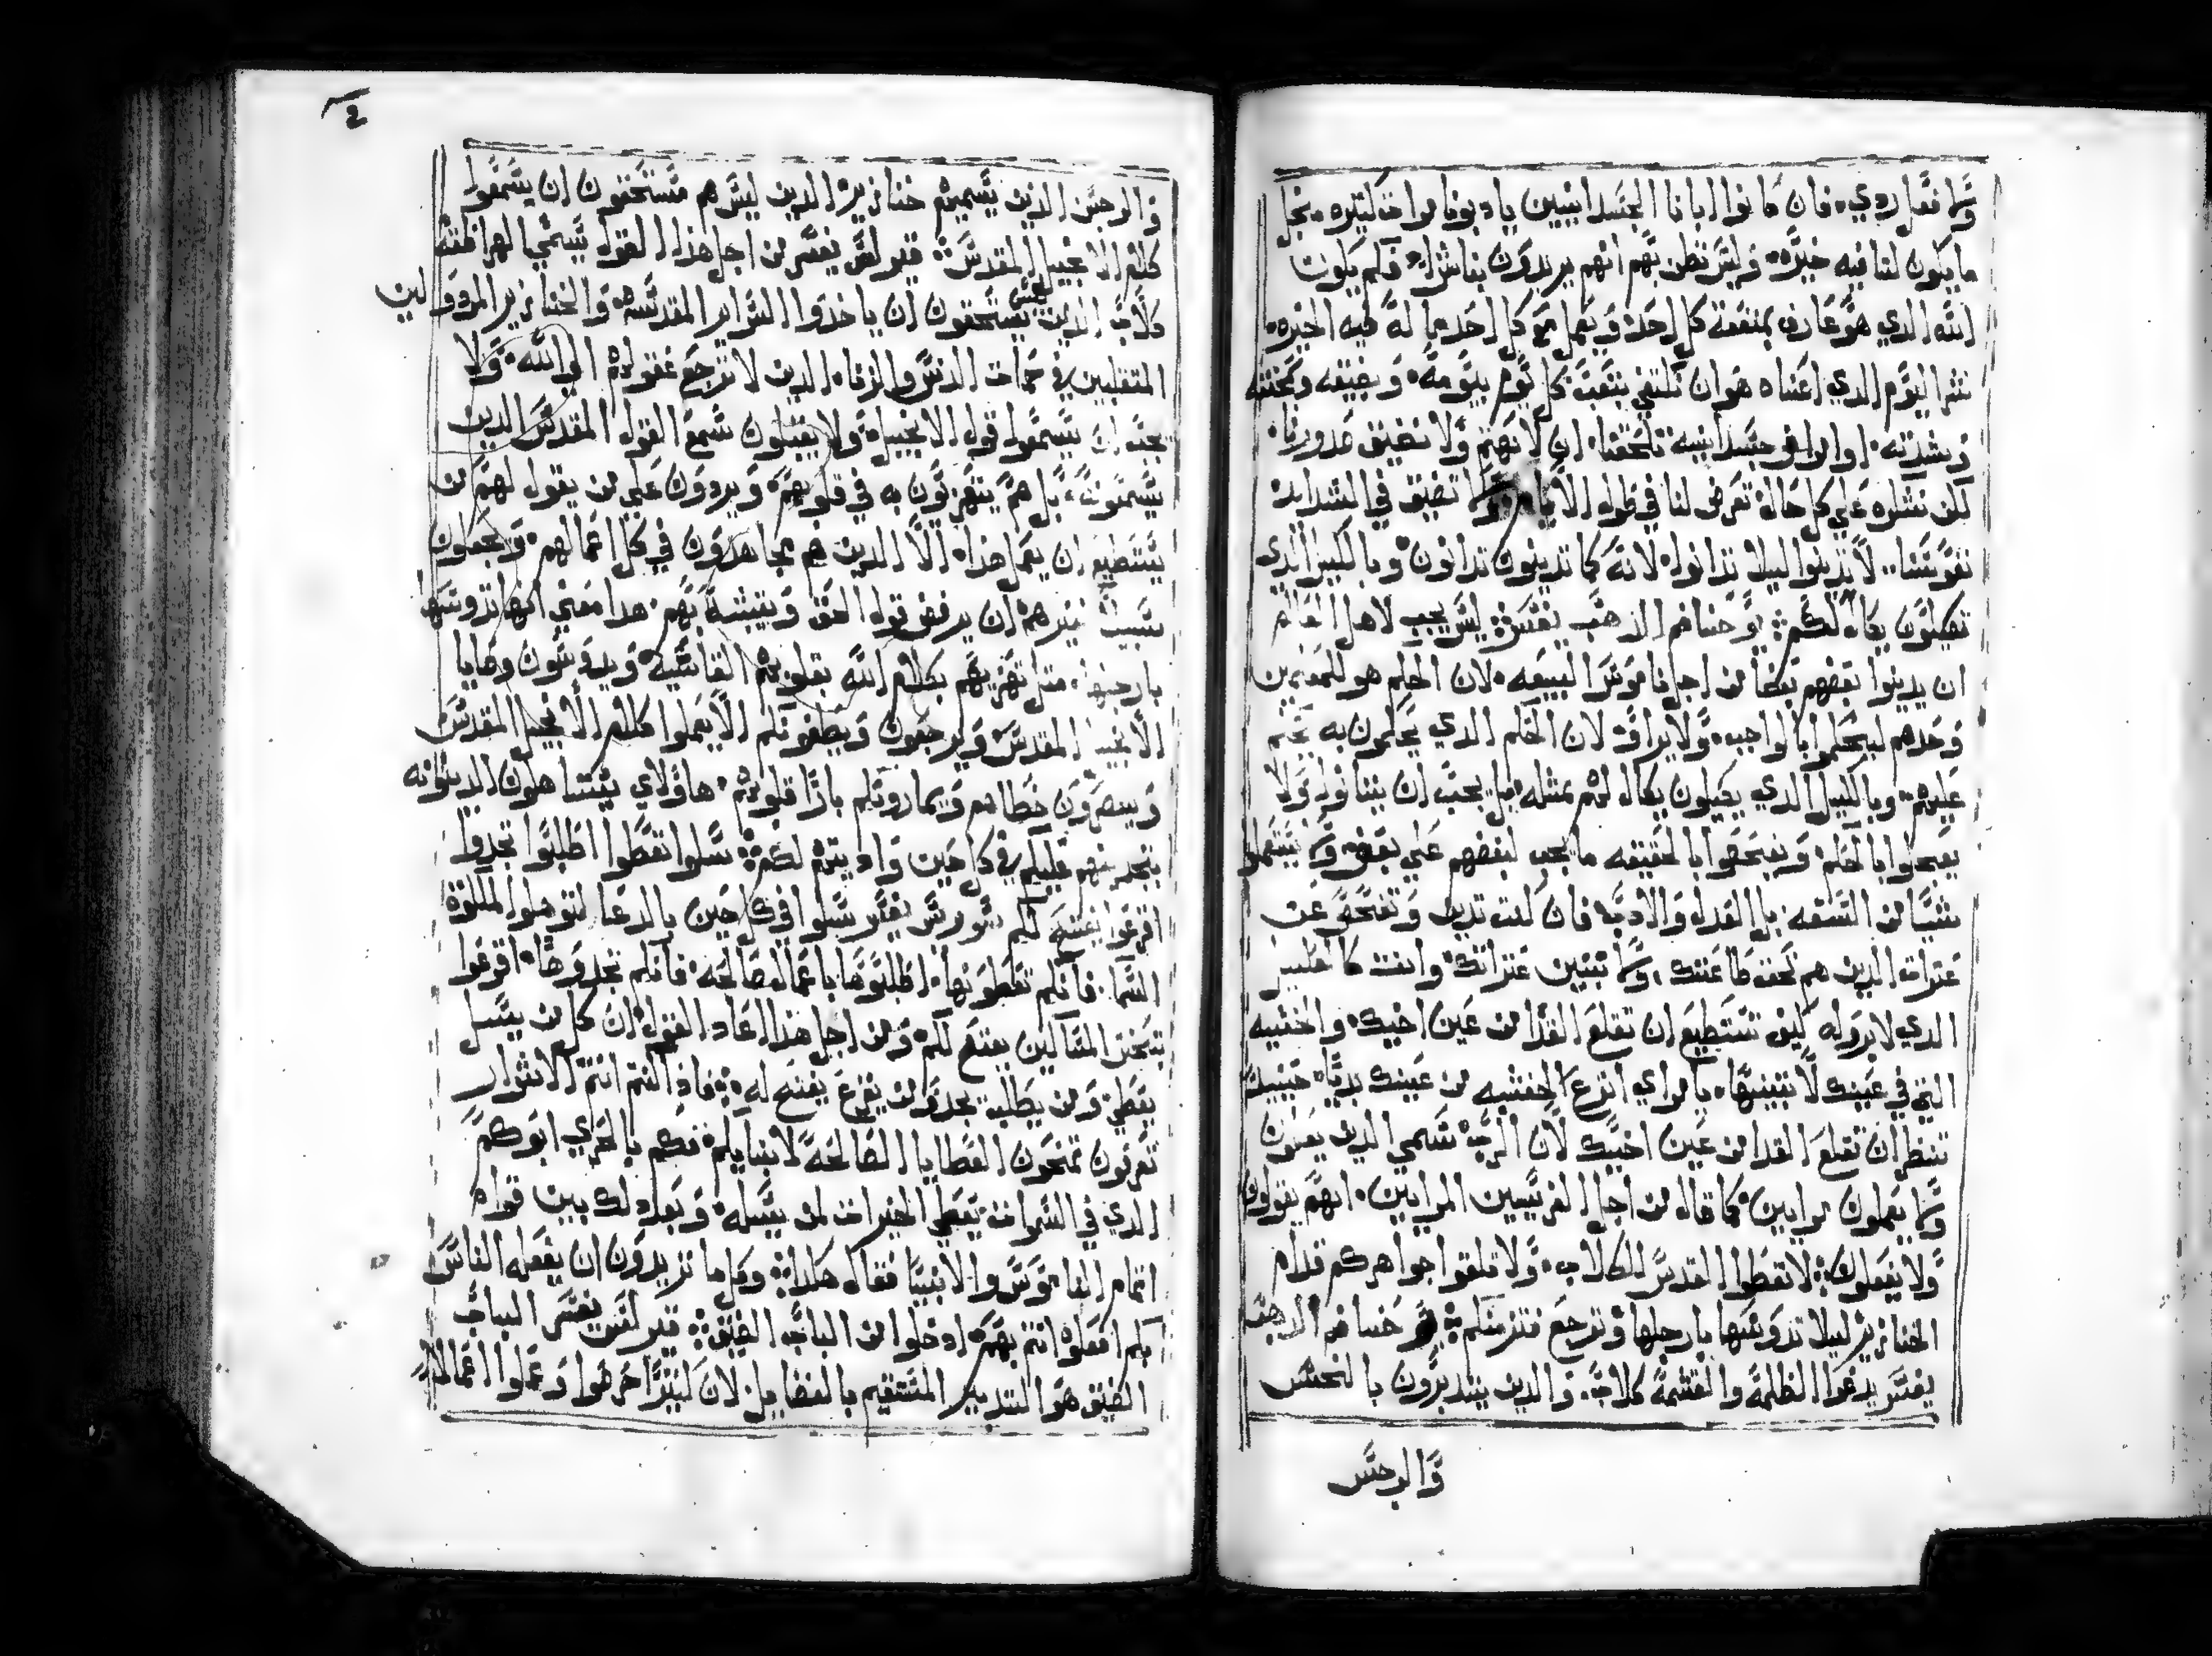 وكما فعل ردي. فان كانوا ابانا الجسدانيين يادبونا مرات كتيره. نجل
ما يكون لنا فيه خيره. وليس نظن بهم انهم يريدون بنا شرا. فكم يكون
الله الدي هو عارف بمنفعة كل احد ويعمل مع كل احد ما له فيه الخيره.
اليوم الدي اعناه هو ان نكتفي بتعب كل يوم بيومه. وبضيقه ومحنته
وبشدته. او امراض جسدانيه تلحقنا. ان لا نهتم ولا تضيق صدورنا.
لكن نشكره علي كل حاله تعرض لنا في قوله الا تضيق في الشدايد
نفوسنا.. لا تدينوا ليلا تدانوا. لانه كما تدينون تدانون وبالكيل الدي
تكيلون يكال لكم: يوحنا فم الدهب يفسر: ليس يجب لاهل العالم
ان يدينوا بعضهم بعضا من اجل ناموس البيعه. لان الحكم هو للمعلمين
وحدهم ليحكموا بالواجب. ولا يراوا. لان الحكم الدي يحكمون به يحكم
عليهم. وبالكيل الدي يكيلون يكال لهم بمثله. بل يجب ان يتانوا ولا
يعجلوا بالحكم. ويفحصوا بالحقيقه ما يجب لبعضهم علي بعض. ولا يستعملوا
شيا من السفه. بل العدل والادب. فان كنت تدين وتفحص عن
عترات الدين هم تحت طاعتك. ولا تبين عتراتك. وانت كالخطير
الدي لا يروله كيف تستطيع ان تقلع القدا من عين اخيك. والخشبه
التي في عينك لا تبينها. يا مراي انزع الخشبه من عينك بديا. حينيد
تنظر ان تقلع القدا من عين اخيك لان الرب سمي الدين يعلمون
ولا يعملون مرايين. كما قال من اجل الفريسيين المرايين. انهم يقولون
ولا يفعلون: لا تعطوا القدس للكلاب. ولا تلقوا جواهركم قدام
الخنازير ليلا تدوسها بارجلها وترجع فتزمنكم: يوحنا فم الدهب
يفسر يدعوا الظلمه والغشمه كلاب. والدين يتدبرون بالنجس
والرجس
والرجس الدين يسميهم خنازير الدين ليس هم مستحقون ان يسمعوا
كلام الانجيل المقدس: قيرلس يفسر من اجل هدا القول يسمي الهراطقه
كلاب الدين ليس يستحقون ان ياخدوا السراير المقدسه والخنازير المردولين
المتقلبين في حمات الدنس والزنا. الدين لا ترجع عقولهم الي الله. ولا
يحبوا ان يسمعوا قول الانجيل. ولا يقبلون سمع القول المقدس الدين
يسمعونه. بل هم يتهزون به في قلوبهم. ويردون علي من يقول لهم من
يستطيع ان يعمل هدا. الا الدين هم مجاهدون في كل اعمالهم. ويجعلون
بسبب غيرهم ان يرفض قول الحق ويتشبه بهم. هدا معني انها تدوسها
بارجلها. متل تهزيهم بكلام الله بقلوبهم القاسيه. ويدوسون وصايا
الانجيل المقدس ويرجعون ويطغوكم الا يعملوا كلام الانجيل المقدس
ويصرون خطاهم ويماروكم بازا قلوبهم. هاولاي يستاهلون الدينونه
يتحدر منهم عليكم في كل حين واديتهم لكم: سلوا تعطوا اطلبوا تجدوا
اقرعوا يفتح لكم سورس يفسر سلوا في كل حين بالدعا لتوهلوا لملكوة
السما. فانكم تعطونها. اطلبوها باعمال صالحه. فانكم تجدوها. اقرعوا
بتحنن المتالين يفتح لكم. ومن اجل هدا اعاد القول. ان كل من يسل
يعطي ومن يطلب يجد ومن يقرع يفتح له: فادا كنتم انتم الاشرار
تعرفون تمنحون العطايا الصالحه لابنايكم. فكم بالحري ابوكم
الدي في السموات يعطي الخيرات لمن يسله. وبعد دلك بين قوله
اتمام الناموس والانبيا فقال هكدا: وكل ما تريدون ان يفعله الناس
بكم افعلوه انتم بهم. ادخلوا من الباب الضيق: قيرلس يفسر الباب
الضيق هو التدبير المستقيم بالفضايل لان كتيرا حرصوا وعملوا اعمال